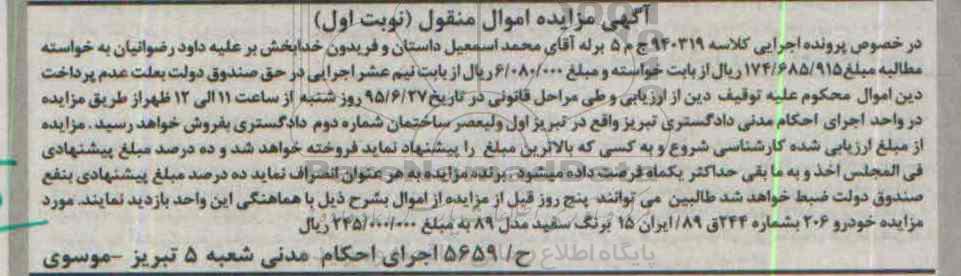 آگهی مزایده اموال منقول (نوبت اول)
در خصوص پرونده اجرایی کلاسه ۹۴۰۳۱۹ ج م ۵ برله آقای محمد اسمعیل داستان و فریدون خدابخش بر علیه داود رضوانیان به خواسته
مطالبه مبلغ ۱۷۴/۶۸۵/۹۱۵ ریال از بابت خواسته و مبلغ ۶/۰۸۰/۰۰۰ ریال از بابت نیم عشر اجرایی در حق صندوق دولت بعلت عدم پرداخت
دین اموال محکوم علیه توقیف دین از ارزیابی و طی مراحل قانونی در تاریخ ۹۵/۶/۲۷ روز شنبه از ساعت ۱۱ الی ۱۲ ظهر از طریق مزایده
در واحد اجرای احکام مدنی دادگستری تبریز واقع در تبریز اول ولیعصر ساختمان شماره دوم دادگستری بفروش خواهد رسید. مزایده
از مبلغ ارزیابی شده کارشناسی شروع و به کسی که بالاترین مبلغ را پیشنهاد نماید فروخته خواهد شد و ده درصد مبلغ پیشنهادی
فی المجلس اخذ و به ما بقی حداکثر یکماه فرصت داده میشود. برنده مزایده به هر عنوان انصراف نماید ده درصد مبلغ پیشنهادی بنفع
صندوق دولت ضبط خواهد شد طالبین می توانند پنج روز قبل از مزایده از اموال بشرح ذیل با هماهنگی این واحد بازدید نمایند. مورد
مزایده خودرو ۲۰۶ بشماره ۲۴۴ق ۸۹/ایران ۱۵ برنگ سفید مدل ۸۹ به مبلغ ۲۴۵/۰۰۰/۰۰۰ ریال
ح/۵۶۵۹ اجرای احکام مدنی شعبه ۵ تبریز -موسوی